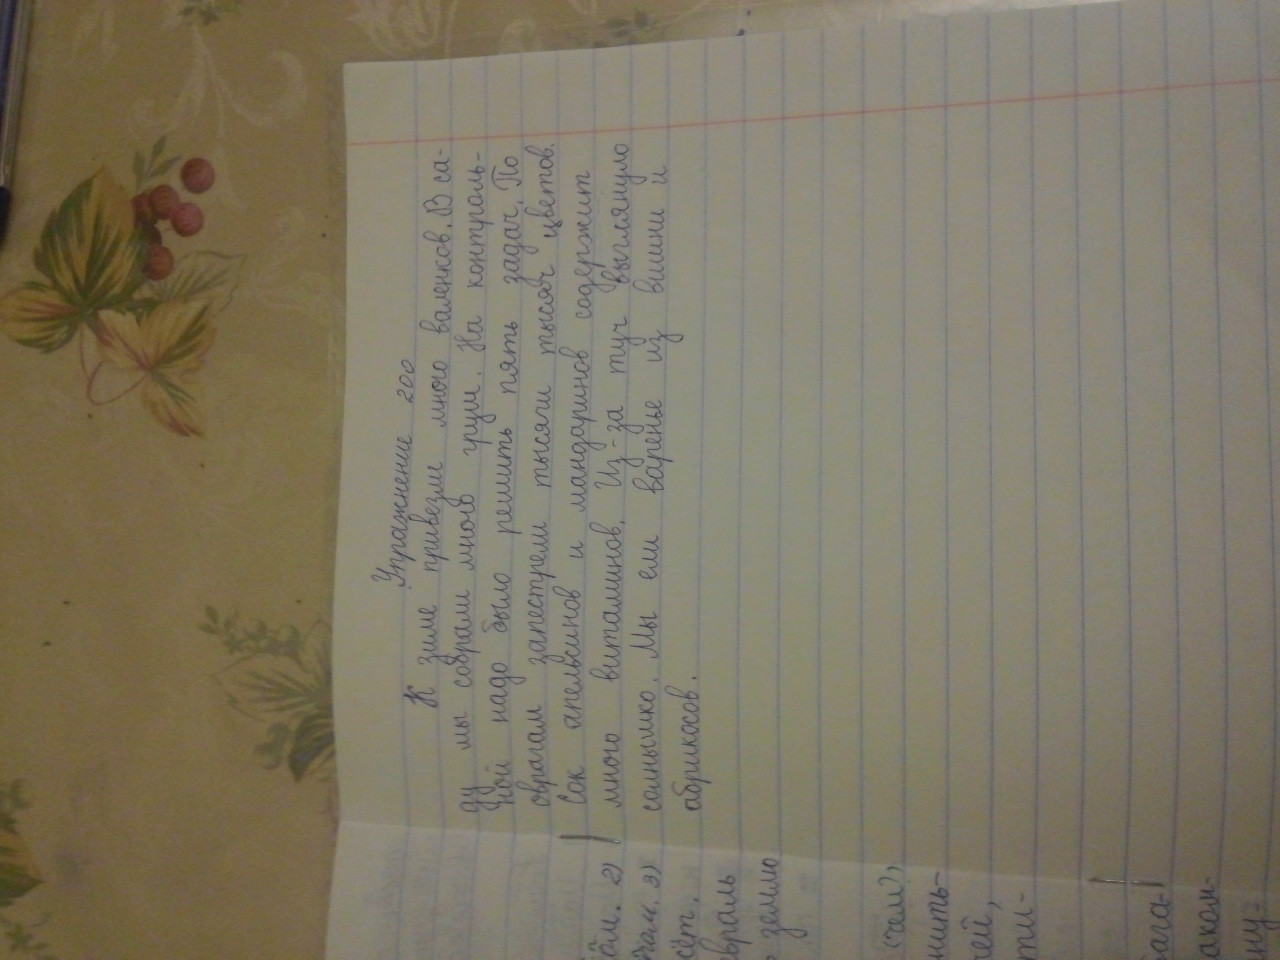 Упражнение 200
К зиме привезли много валенков. В са-
ду мы собрали много груш. На контроль-
ной надо было решить пять задач. По
оврагам запестрели тысячи тысяч цветов.
Сок апельсинов и мандаринов содержит
много витаминов. Из-за туч выглянуло
солнышко. Мы ели варенье из вишни и
абрикосов.
ам. 2)
3)
сёт.
враль
землю
(чем?)
нить-
чей,
ти-
ага-
аком-
ну-